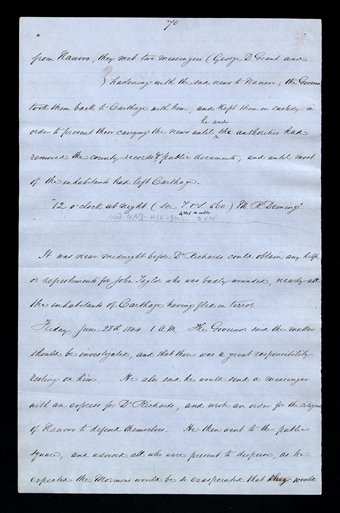 70
from Nauvoo, they met two messengers (George D. Grant and
) hastening with the sad news to Nauvoo; the Governor
took them back to Carthage with him, and kept them in custody in
he and
order to prevent their carrying the news until the authorities had
removed the county records & public documents, and until most
of the inhabitants had left Carthage.
"12 o'clock at night (see T & S 560.) M. R. Deming"
It was near midnight before Dr Richards could obtain any help
or refreshments for John Taylor who was badly wounded, nearly all
the inhabitants of Carthage having fled in terror
Friday June 28th 1844. 1 A.M. The Governor said the matter
should be investigated, and that there was a great responsibility
resting on him. He also said he would send a messenger
with an express for Dr Richards, and wrote an order for the citizens
of Nauvoo to defend themselves. He then went to the public
square, and advised all who were present to disperse, as he
expected the Mormons would be so exasperated that they would